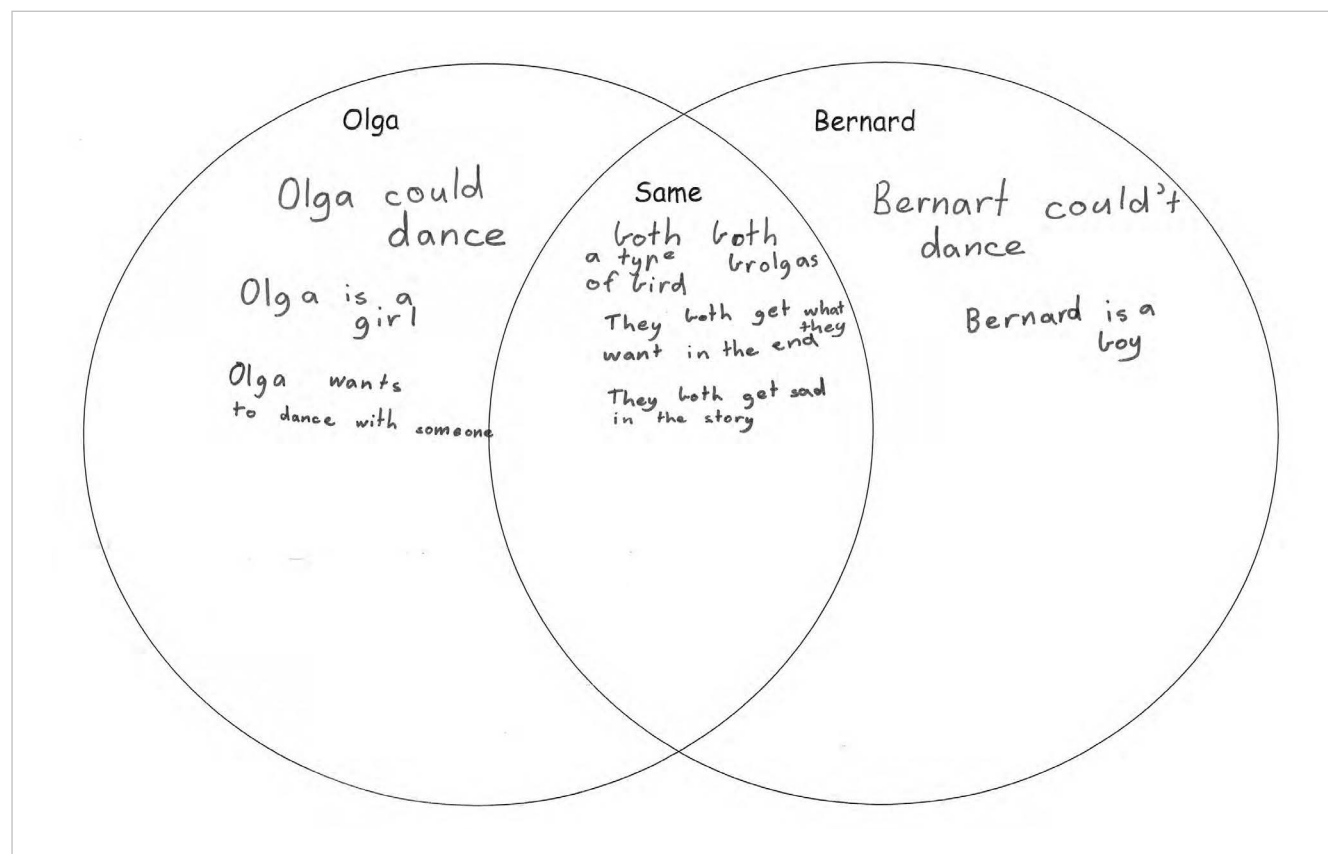 Olga
Olga could
dance
Olga is a
girl
Olga wants
to dance with someone
Same
both both
a type brolgas
of bird
They both get what
they
want in the end
They both get sad
in the story
Bernard
Bernart could't
dance
Bernard is a
boy